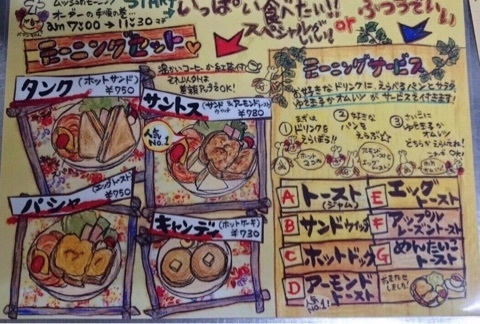 START
オーダーの手順の巻…
am 7:00 → 11:30 コマ
いっぱい食べたい!!
スペシャルだい!
or
ふつうでいい
モーニングセット
温かいコーヒーか紅茶付
それ以外は
差額プラスもOK!
タンク (ホットサンド)
¥750
サントス
¥780
人気No.1
(エッグトースト)
¥750
パシャ
キャンディ (ホットケーキ)
¥730
モーニングサービス
お好きなドリンクに、えらべるパンとサラダ
ゆでたまごかオムレツ がサービスで付きます!
① まずは
ドリンクを
えらぼう!!
② お好きな
パンを
えらぶ
③ さいごに
ゆでたまごかオムレツ
どちらかえらんでね!
A トースト (ジャム)
B サンドウィッチ
C ホットドック
D アーモンドトースト
人気No.1!
E エッグトースト
F アップルレーズントースト
G めんたいこトースト
おまたせしました!